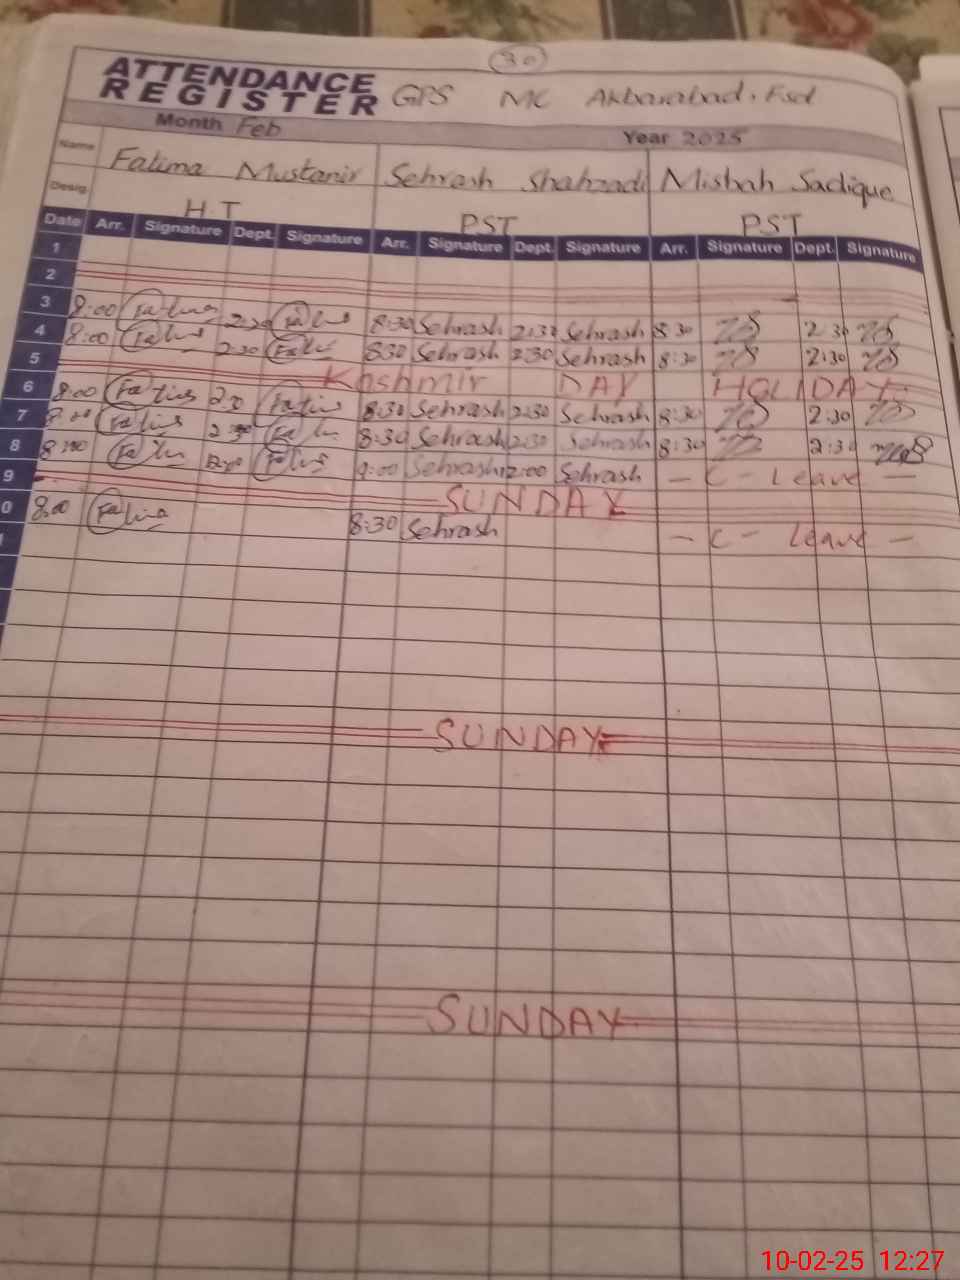 30
ATTENDANCE
REGISTER GPS MC Akbarabad, Fsd
Month Feb Year 2025
Name Fatima Mustanir Sehrash Shahzadi Misbah Sadique
Desig. H.T PST PST
Date Arr. Signature Dept. Signature Arr. Signature Dept. Signature Arr. Signature Dept. Signature
1
2
3 8:00 Fatima 2:30 8:30 Sehrash 2:30 Sehrash 8:30 2:30
4 8:00 2:30 8:30 Sehrash 2:30 Sehrash 8:30 2:30
5 Kashmir DAY HOLIDAY
6 8:00 8:30 Sehrash 2:30 Sehrash 8:30 2:30
7 8:00 8:30 Sehrash 2:30 Sehrash 8:30 2:30
8 8:00 9:00 Sehrash 12:00 Sehrash - C - Leave -
9 SUNDAY
0 8:00 Fatima 8:30 Sehrash - C - Leave -
SUNDAY
SUNDAY
10-02-25 12:27